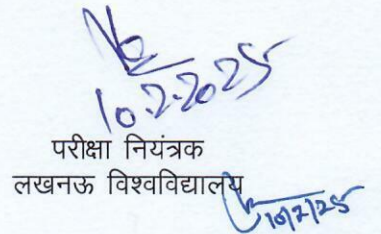 10.2.2025
परीक्षा नियंत्रक
लखनऊ विश्वविद्यालय
10/2/25